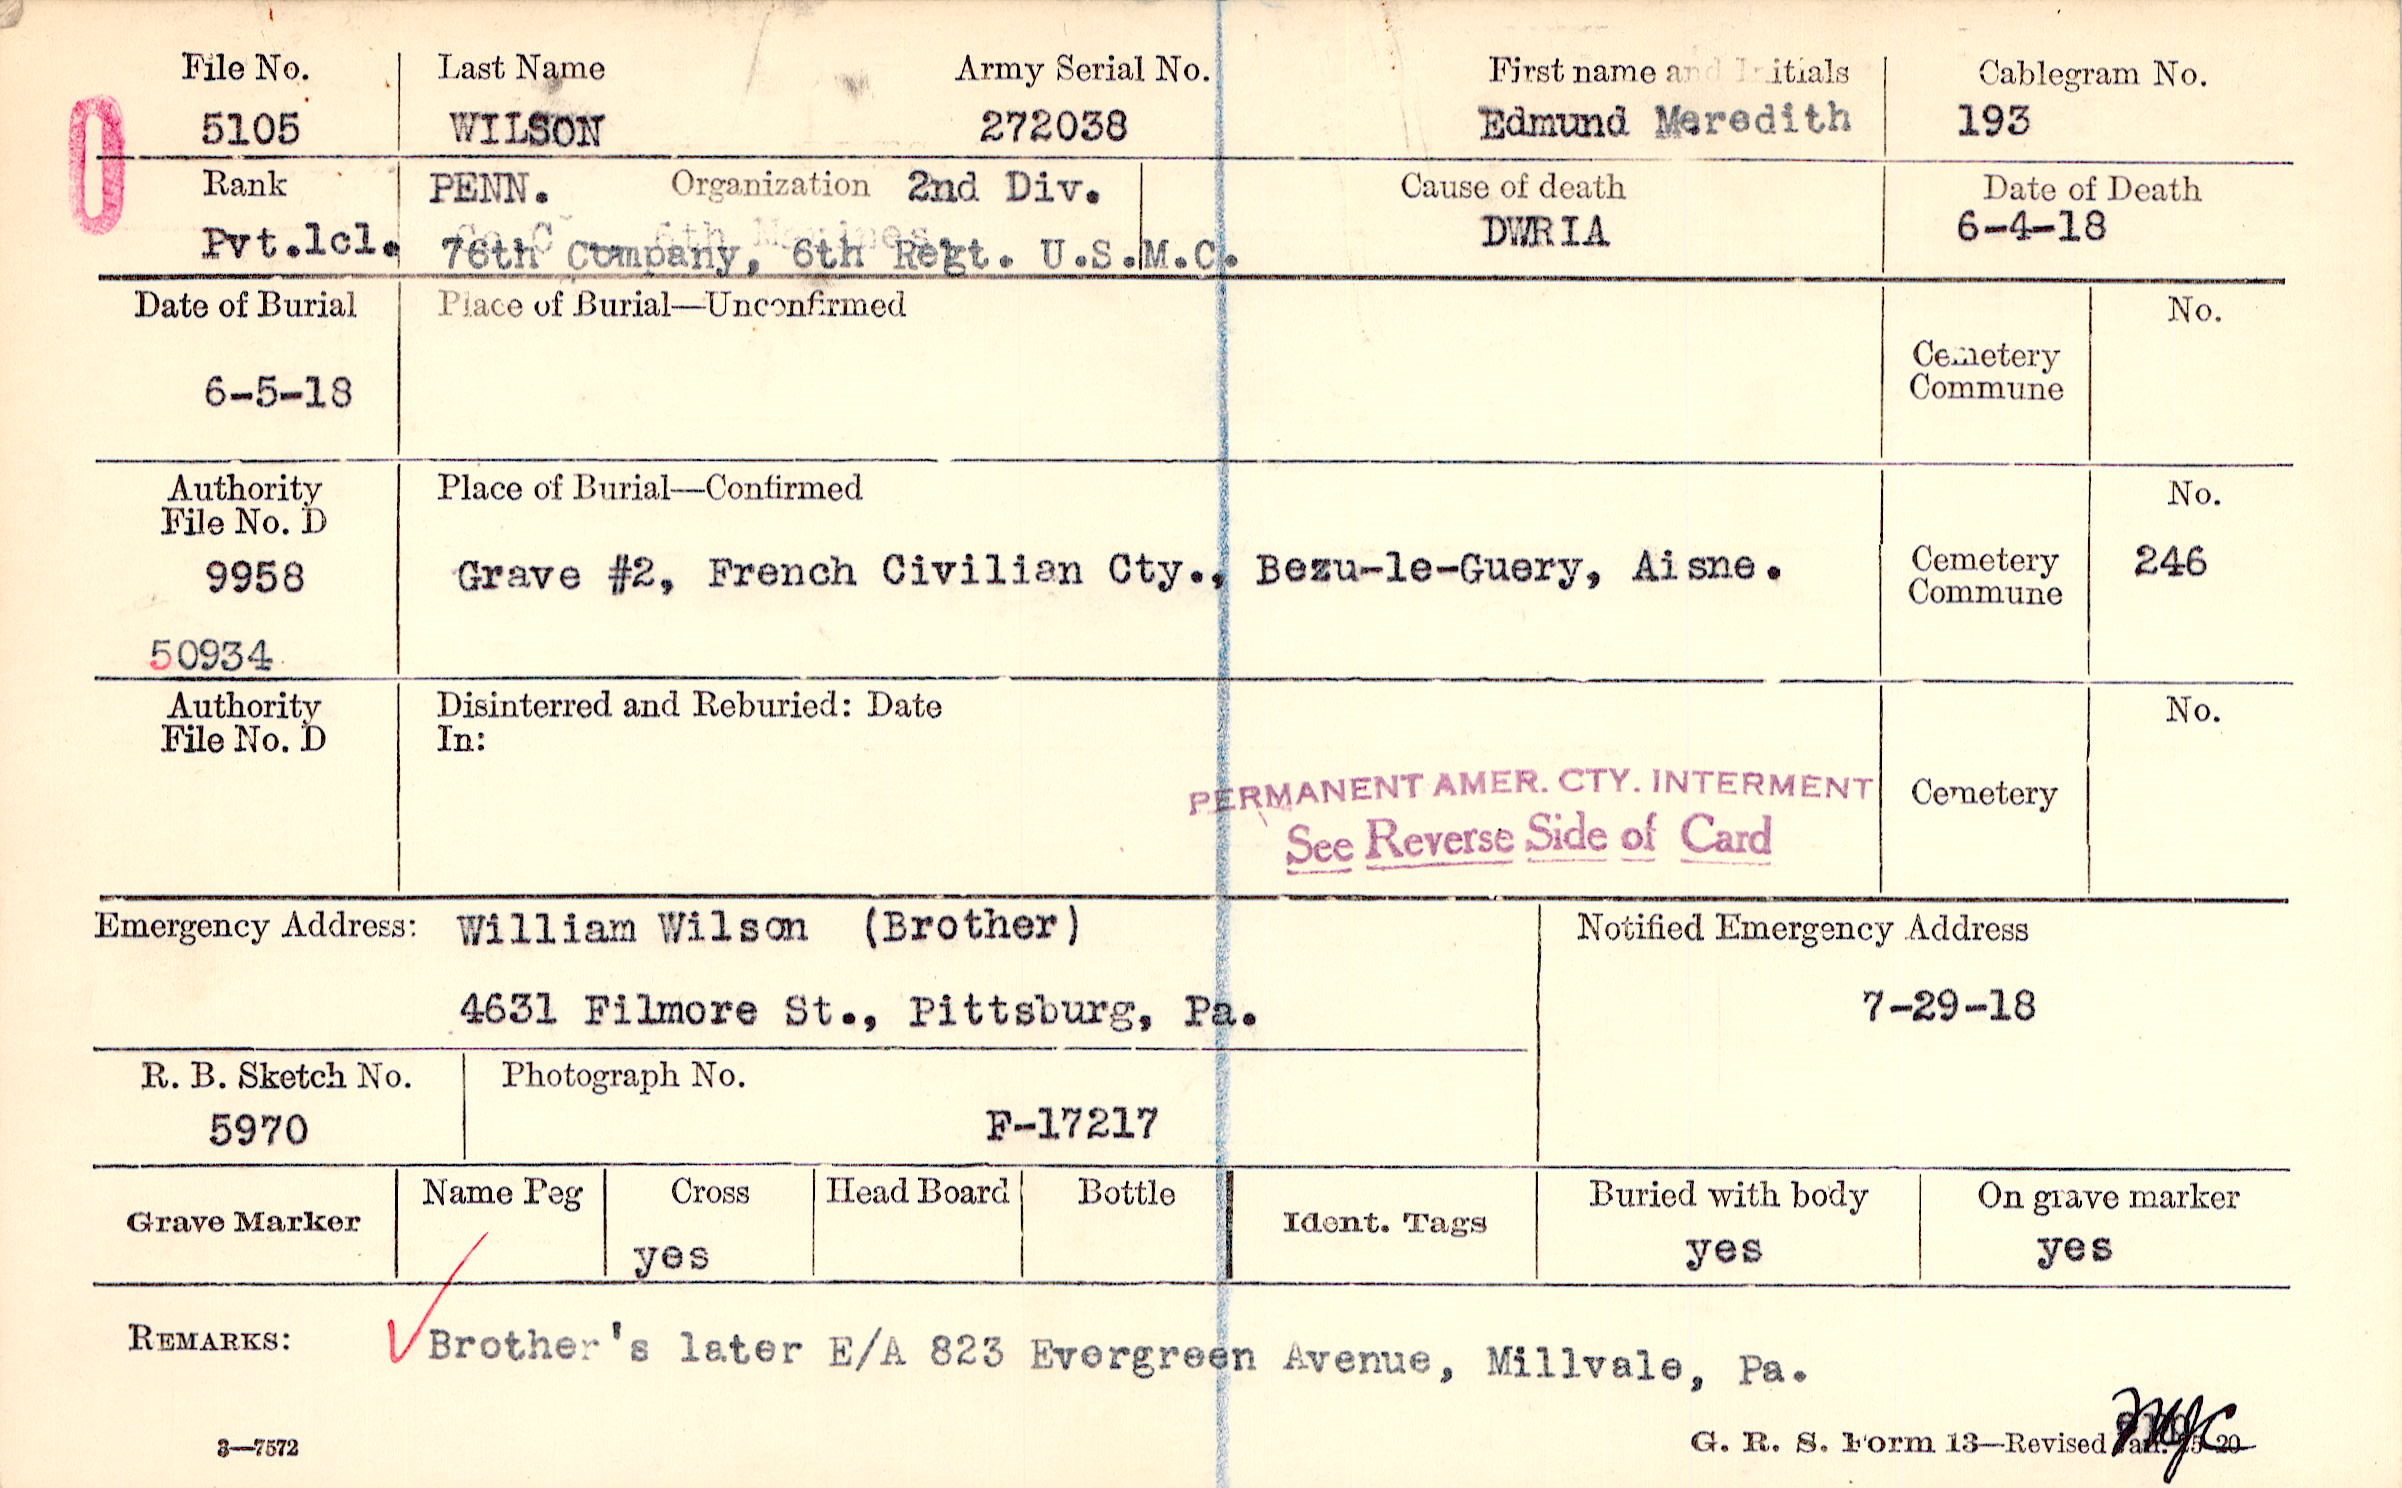 File No. Last Name Army Serial No. First name and Initials Cablegram No.
5105 WILSON 272038 Edmund Meredith 193
Rank PENN. Organization 2nd Div. Cause of death Date of Death
Pvt.1cl. 76th Company, 6th Regt. U.S.M.C. DWRIA 6-4-18
Date of Burial Place of Burial—Unconfirmed No.
6-5-18 Cemetery
Commune
Authority Place of Burial—Confirmed No.
File No. D
9958 Grave #2, French Civilian Cty., Bezu-le-Guery, Aisne. Cemetery 246
Commune
50934
Authority Disinterred and Reburied: Date No.
File No. D In:
PERMANENT AMER. CTY. INTERMENT Cemetery
See Reverse Side of Card
Emergency Address: William Wilson (Brother) Notified Emergency Address
4631 Filmore St., Pittsburg, Pa. 7-29-18
R. B. Sketch No. Photograph No.
5970 F-17217
Grave Marker Name Peg Cross Head Board Bottle Ident. Tags Buried with body On grave marker
yes yes yes
REMARKS: Brother's later E/A 823 Evergreen Avenue, Millvale, Pa.
3—7572 G. R. S. Form 13—Revised